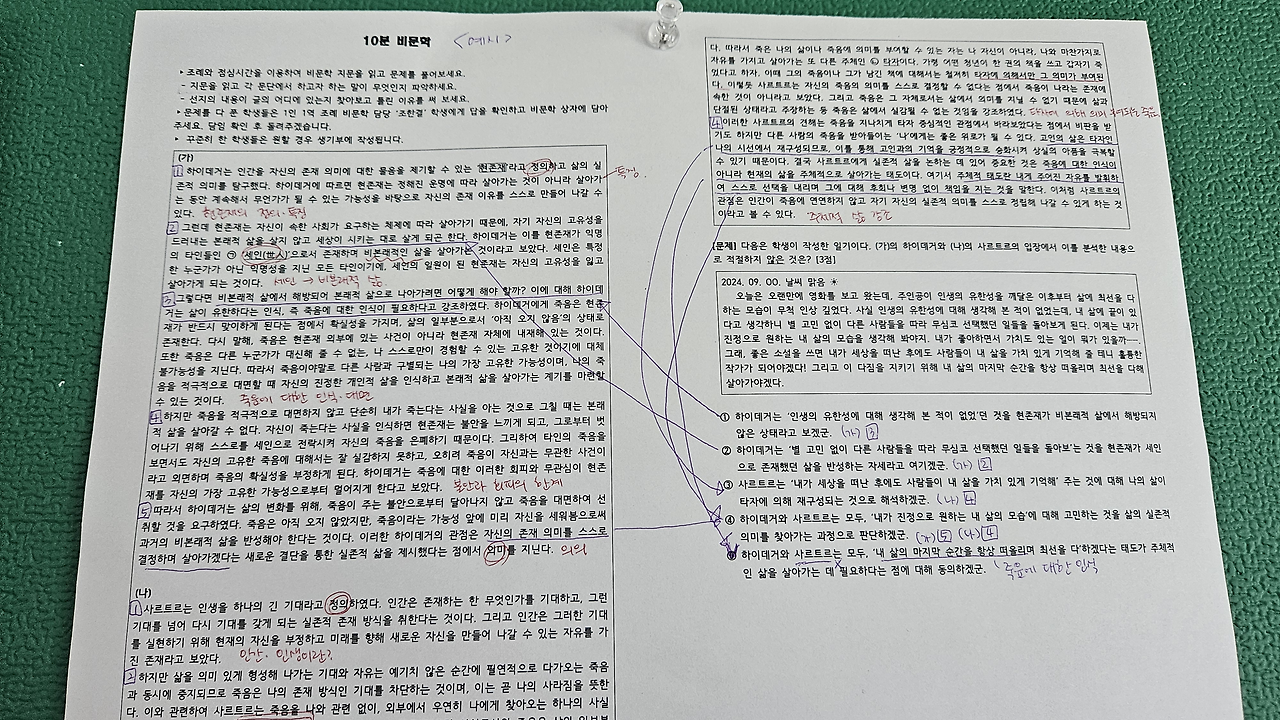 10분 비문학 <예시>
‣ 조례와 점심시간을 이용하여 비문학 지문을 읽고 문제를 풀어보세요.
- 지문을 읽고 각 문단에서 하고자 하는 말이 무엇인지 파악하세요.
- 선지의 내용이 글의 어디에 있는지 찾아보고 틀린 이유를 써 보세요.
‣ 문제를 다 푼 학생들은 1인 1역 조례 비문학 담당 '조한결' 학생에게 답을 확인하고 비문학 상자에 담아
주세요. 담임 확인 후 돌려주겠습니다.
‣ 꾸준히 한 학생들은 원할 경우 생기부에 작성됩니다.
(가)
1 하이데거는 인간을 자신의 존재 의미에 대한 물음을 제기할 수 있는 현존재라고 정의하고 삶의 실
존적 의미를 탐구했다. 하이데거에 따르면 현존재는 정해진 운명에 따라 살아가는 것이 아니라 살아가
는 동안 계속해서 무언가가 될 수 있는 가능성을 바탕으로 자신의 존재 이유를 스스로 만들어 나갈 수
있다. 현존재의 정의·특징
특징.
2 그런데 현존재는 자신이 속한 사회가 요구하는 체제에 따라 살아가기 때문에, 자기 자신의 고유성을
드러내는 본래적 삶을 살지 않고 세상이 시키는 대로 살게 되곤 한다. 하이데거는 이를 현존재가 익명
의 타인들인 ㉠ 세인(世人)으로서 존재하며 비본래적인 삶을 살아가는 것이라고 보았다. 세인은 특정
한 누군가가 아닌 익명성을 지닌 모든 타인이기에, 세인의 일원이 된 현존재는 자신의 고유성을 잃고
살아가게 되는 것이다. 세인 → 비본래적 삶
3 그렇다면 비본래적 삶에서 해방되어 본래적 삶으로 나아가려면 어떻게 해야 할까? 이에 대해 하이데
거는 삶이 유한하다는 인식, 즉 죽음에 대한 인식이 필요하다고 강조하였다. 하이데거에게 죽음은 현존
재가 반드시 맞이하게 된다는 점에서 확실성을 가지며, 삶의 일부분으로서 '아직 오지 않음'의 상태로
존재한다. 다시 말해, 죽음은 현존재 외부에 있는 사건이 아니라 현존재 자체에 내재해 있는 것이다.
또한 죽음은 다른 누군가가 대신해 줄 수 없는, 나 스스로만이 경험할 수 있는 고유한 것이기에 대체
불가능성을 지닌다. 따라서 죽음이야말로 다른 사람과 구별되는 나의 가장 고유한 가능성이며, 나의 죽
음을 적극적으로 대면할 때 자신의 진정한 개인적 삶을 인식하고 본래적 삶을 살아가는 계기를 마련할
수 있는 것이다. 죽음에 대한 인식·대면
4 하지만 죽음을 적극적으로 대면하지 않고 단순히 내가 죽는다는 사실을 아는 것으로 그칠 때는 본래
적 삶을 살아갈 수 없다. 자신이 죽는다는 사실을 인식하면 현존재는 불안을 느끼게 되고, 그로부터 벗
어나기 위해 스스로를 세인으로 전락시켜 자신의 죽음을 은폐하기 때문이다. 그리하여 타인의 죽음을
보면서도 자신의 고유한 죽음에 대해서는 잘 실감하지 못하고, 오히려 죽음이 자신과는 무관한 사건이
라고 외면하며 죽음의 확실성을 부정하게 된다. 하이데거는 죽음에 대한 이러한 회피와 무관심이 현존
재를 자신의 가장 고유한 가능성으로부터 멀어지게 한다고 보았다. 불안과 회피의 한계
5 따라서 하이데거는 삶의 변화를 위해, 죽음이 주는 불안으로부터 달아나지 않고 죽음을 대면하여 선
취할 것을 요구하였다. 죽음은 아직 오지 않았지만, 죽음이라는 가능성 앞에 미리 자신을 세워봄으로써
과거의 비본래적 삶을 반성해야 한다는 것이다. 이러한 하이데거의 관점은 자신의 존재 의미를 스스로
결정하며 살아가겠다는 새로운 결단을 통한 실존적 삶을 제시했다는 점에서 의미를 지닌다. 의의
(나)
1 사르트르는 인생을 하나의 긴 기대라고 정의하였다. 인간은 존재하는 한 무엇인가를 기대하고, 그런
기대를 넘어 다시 기대를 갖게 되는 실존적 존재 방식을 취한다는 것이다. 그리고 인간은 그러한 기대
를 실현하기 위해 현재의 자신을 부정하고 미래를 향해 새로운 자신을 만들어 나갈 수 있는 자유를 가
진 존재라고 보았다. 인간·인생이란?
2 하지만 삶을 의미 있게 형성해 나가는 기대와 자유는 예기치 않은 순간에 필연적으로 다가오는 죽음
과 동시에 중지되므로 죽음은 나의 존재 방식인 기대를 차단하는 것이며, 이는 곧 나의 사라짐을 뜻한
다. 이와 관련하여 사르트르는 죽음을 나와 관련 없이, 외부에서 우연히 나에게 찾아오는 하나의 사실
다. 따라서 죽은 나의 삶이나 죽음에 의미를 부여할 수 있는 자는 나 자신이 아니라, 나와 마찬가지로
자유를 가지고 살아가는 또 다른 주체인 ㉡ 타자이다. 가령 어떤 청년이 한 권의 책을 쓰고 갑자기 죽
었다고 하자. 이때 그의 죽음이나 그가 남긴 책에 대해서는 철저히 타자에 의해서만 그 의미가 부여된
다. 이렇듯 사르트르는 자신의 죽음의 의미를 스스로 결정할 수 없다는 점에서 죽음이 나의 존재에
속한 것이 아니라고 보았다. 그리고 죽음은 그 자체로서는 삶에서 의미를 지닐 수 없기 때문에 삶과
단절된 상태라고 주장하는 등 죽음은 삶에서 실감될 수 없는 것임을 강조하였다. 타자에 의해 의미 부여되는 죽음
4 이러한 사르트르의 견해는 죽음을 지나치게 타자 중심적인 관점에서 바라보았다는 점에서 비판을 받
기도 하지만 다른 사람의 죽음을 받아들이는 '나'에게는 좋은 위로가 될 수 있다. 고인의 삶은 타자인
나의 시선에서 재구성되므로, 이를 통해 고인과의 기억을 긍정적으로 승화시켜 상실의 아픔을 극복할
수 있기 때문이다. 결국 사르트르에게 실존적 삶을 논하는 데 있어 중요한 것은 죽음에 대한 인식이
아니라 현재의 삶을 주체적으로 살아가는 태도이다. 여기서 주체적 태도란 내게 주어진 자유를 발휘하
여 스스로 선택을 내리며 그에 대해 후회나 변명 없이 책임을 지는 것을 말한다. 이처럼 사르트르의
관점은 인간이 죽음에 연연하지 않고 자기 자신의 실존적 의미를 스스로 정립해 나갈 수 있게 하는 것
이라고 볼 수 있다. 주체적 삶 강조
[문제] 다음은 학생이 작성한 일기이다. (가)의 하이데거와 (나)의 사르트르의 입장에서 이를 분석한 내용으
로 적절하지 않은 것은? [3점]
2024. 09. 00. 날씨 맑음 ☀
오늘은 오랜만에 영화를 보고 왔는데, 주인공이 인생의 유한성을 깨달은 이후부터 삶에 최선을 다
하는 모습이 무척 인상 깊었다. 사실 인생의 유한성에 대해 생각해 본 적이 없었는데, 내 삶에 끝이 있
다고 생각하니 별 고민 없이 다른 사람들을 따라 무심코 선택했던 일들을 돌아보게 된다. 이제는 내가
진정으로 원하는 내 삶의 모습을 생각해 봐야지. 내가 좋아하면서 가치도 있는 일이 뭐가 있을까―.
그래, 좋은 소설을 쓰면 내가 세상을 떠난 후에도 사람들이 내 삶을 가치 있게 기억해 줄 테니 훌륭한
작가가 되어야겠다! 그리고 이 다짐을 지키기 위해 내 삶의 마지막 순간을 항상 떠올리며 최선을 다해
살아가야겠다.
① 하이데거는 '인생의 유한성에 대해 생각해 본 적이 없었'던 것을 현존재가 비본래적 삶에서 해방되지
않은 상태라고 보겠군. (가) 3
② 하이데거는 '별 고민 없이 다른 사람들을 따라 무심코 선택했던 일들을 돌아보'는 것을 현존재가 세인
으로 존재했던 삶을 반성하는 자세라고 여기겠군. (가) 2
③ 사르트르는 '내가 세상을 떠난 후에도 사람들이 내 삶을 가치 있게 기억해' 주는 것에 대해 나의 삶이
타자에 의해 재구성되는 것으로 해석하겠군. (나) 4
④ 하이데거와 사르트르는 모두, '내가 진정으로 원하는 내 삶의 모습'에 대해 고민하는 것을 삶의 실존적
의미를 찾아가는 과정으로 판단하겠군. (가) 5 (나) 4
⑤ 하이데거와 사르트르는 모두, '내 삶의 마지막 순간을 항상 떠올리며 최선을 다'하겠다는 태도가 주체적
인 삶을 살아가는 데 필요하다는 점에 대해 동의하겠군. 죽음에 대한 인식